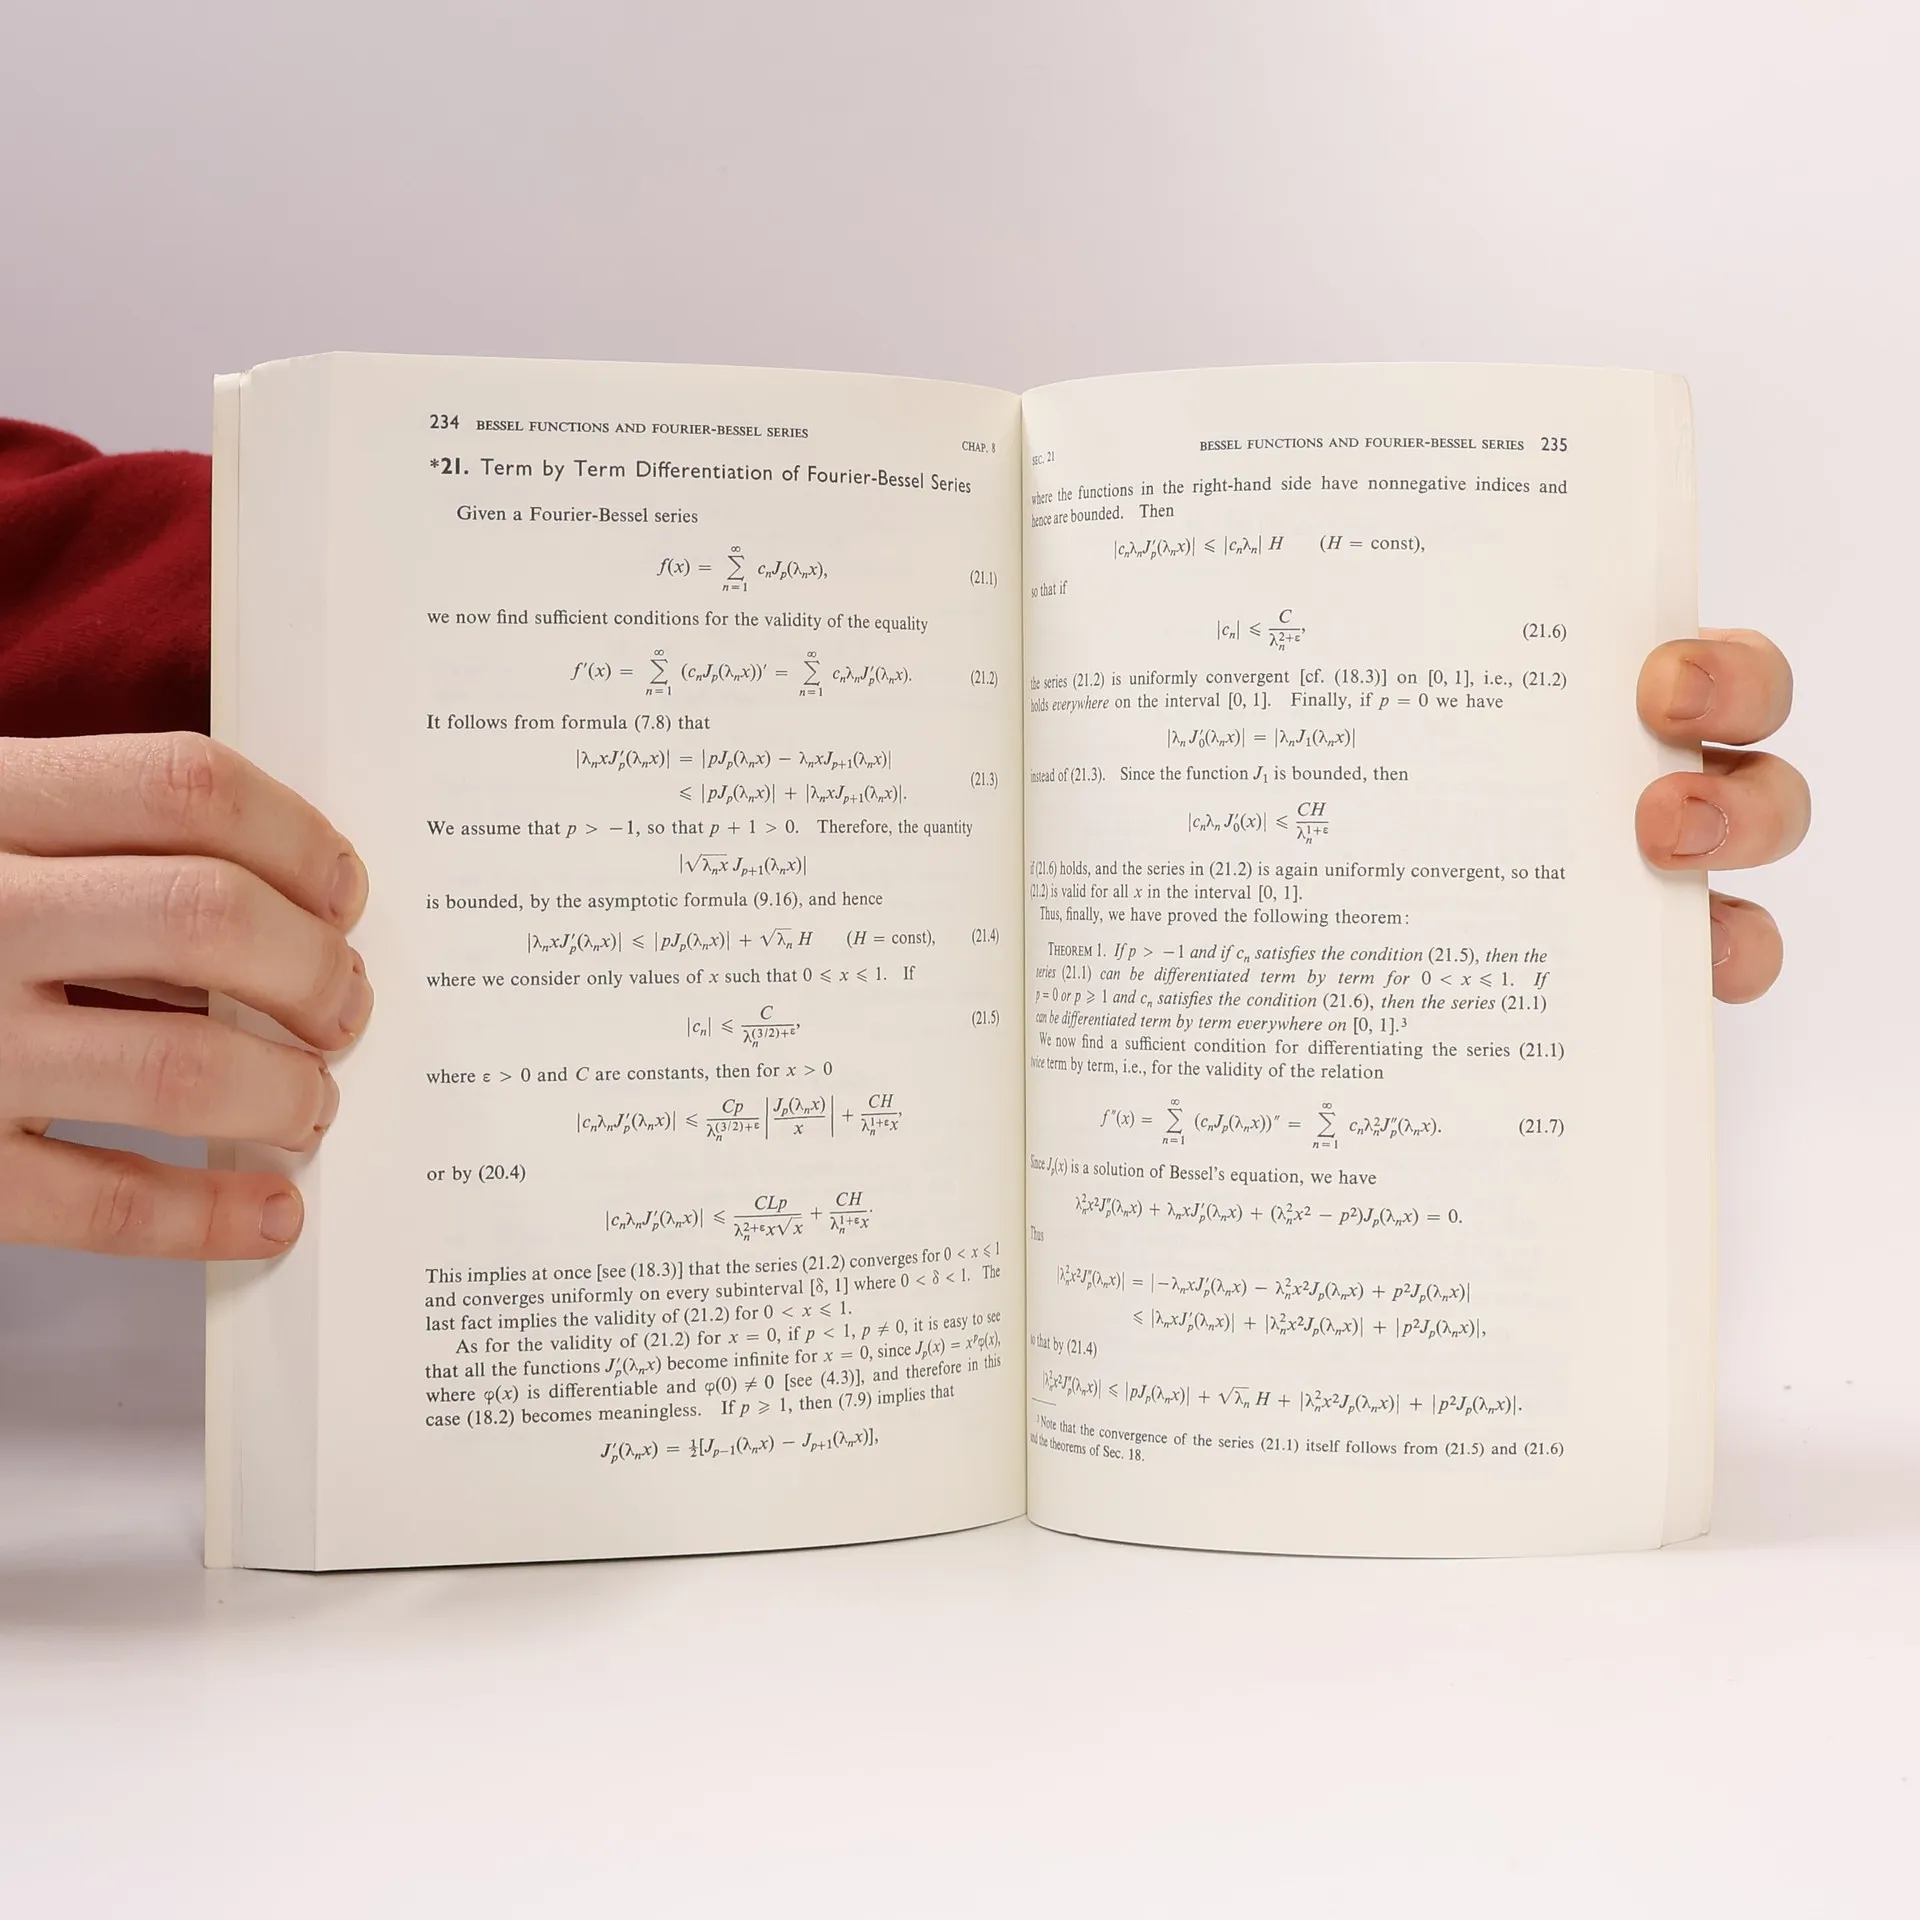 234 BESSEL FUNCTIONS AND FOURIER-BESSEL SERIES CHAP. 8
*21. Term by Term Differentiation of Fourier-Bessel Series
Given a Fourier-Bessel series
f(x) = ∑_{n=1}^{∞} c_n J_p(λ_n x), (21.1)
we now find sufficient conditions for the validity of the equality
f′(x) = ∑_{n=1}^{∞} (c_n J_p(λ_n x))′ = ∑_{n=1}^{∞} c_n λ_n J′_p(λ_n x). (21.2)
It follows from formula (7.8) that
|λ_n x J′_p(λ_n x)| = |pJ_p(λ_n x) − λ_n x J_{p+1}(λ_n x)|
⩽ |pJ_p(λ_n x)| + |λ_n x J_{p+1}(λ_n x)|. (21.3)
We assume that p > −1, so that p + 1 > 0. Therefore, the quantity
|√(λ_n x) J_{p+1}(λ_n x)|
is bounded, by the asymptotic formula (9.16), and hence
|λ_n x J′_p(λ_n x)| ⩽ |pJ_p(λ_n x)| + √λ_n H (H = const), (21.4)
where we consider only values of x such that 0 ⩽ x ⩽ 1. If
|c_n| ⩽ C/λ_n^{(3/2)+ε}, (21.5)
where ε > 0 and C are constants, then for x > 0
|c_n λ_n J′_p(λ_n x)| ⩽ Cp/λ_n^{(3/2)+ε} |J_p(λ_n x)/x| + CH/λ_n^{1+ε}x,
or by (20.4)
|c_n λ_n J′_p(λ_n x)| ⩽ CLp/λ_n^{2+ε}x√x + CH/λ_n^{1+ε}x.
This implies at once [see (18.3)] that the series (21.2) converges for 0 < x ⩽ 1
and converges uniformly on every subinterval [δ, 1] where 0 < δ < 1. The
last fact implies the validity of (21.2) for 0 < x ⩽ 1.
As for the validity of (21.2) for x = 0, if p < 1, p ≠ 0, it is easy to see
that all the functions J′_p(λ_n x) become infinite for x = 0, since J_p(x) = x^p φ(x),
where φ(x) is differentiable and φ(0) ≠ 0 [see (4.3)], and therefore in this
case (18.2) becomes meaningless. If p ⩾ 1, then (7.9) implies that
J′_p(λ_n x) = ½[J_{p−1}(λ_n x) − J_{p+1}(λ_n x)],
SEC. 21 BESSEL FUNCTIONS AND FOURIER-BESSEL SERIES 235
where the functions in the right-hand side have nonnegative indices and
hence are bounded. Then
|c_n λ_n J′_p(λ_n x)| ⩽ |c_n λ_n| H (H = const),
so that if
|c_n| ⩽ C/λ_n^{2+ε}, (21.6)
the series (21.2) is uniformly convergent [cf. (18.3)] on [0, 1], i.e., (21.2)
holds everywhere on the interval [0, 1]. Finally, if p = 0 we have
|λ_n J′_0(λ_n x)| = |λ_n J_1(λ_n x)|
instead of (21.3). Since the function J_1 is bounded, then
|c_n λ_n J′_0(x)| ⩽ CH/λ_n^{1+ε}
if (21.6) holds, and the series in (21.2) is again uniformly convergent, so that
(21.2) is valid for all x in the interval [0, 1].
Thus, finally, we have proved the following theorem:
THEOREM 1. If p > −1 and if c_n satisfies the condition (21.5), then the
series (21.1) can be differentiated term by term for 0 < x ⩽ 1. If
p = 0 or p ⩾ 1 and c_n satisfies the condition (21.6), then the series (21.1)
can be differentiated term by term everywhere on [0, 1].³
We now find a sufficient condition for differentiating the series (21.1)
twice term by term, i.e., for the validity of the relation
f″(x) = ∑_{n=1}^{∞} (c_n J_p(λ_n x))″ = ∑_{n=1}^{∞} c_n λ_n² J″_p(λ_n x). (21.7)
Since J_p(x) is a solution of Bessel's equation, we have
λ_n² x² J″_p(λ_n x) + λ_n x J′_p(λ_n x) + (λ_n² x² − p²)J_p(λ_n x) = 0.
Thus
|λ_n² x² J″_p(λ_n x)| = |−λ_n x J′_p(λ_n x) − λ_n² x² J_p(λ_n x) + p² J_p(λ_n x)|
⩽ |λ_n x J′_p(λ_n x)| + |λ_n² x² J_p(λ_n x)| + |p² J_p(λ_n x)|,
so that by (21.4)
|λ_n² x² J″_p(λ_n x)| ⩽ |pJ_p(λ_n x)| + √λ_n H + |λ_n² x² J_p(λ_n x)| + |p² J_p(λ_n x)|.
³ Note that the convergence of the series (21.1) itself follows from (21.5) and (21.6)
and the theorems of Sec. 18.